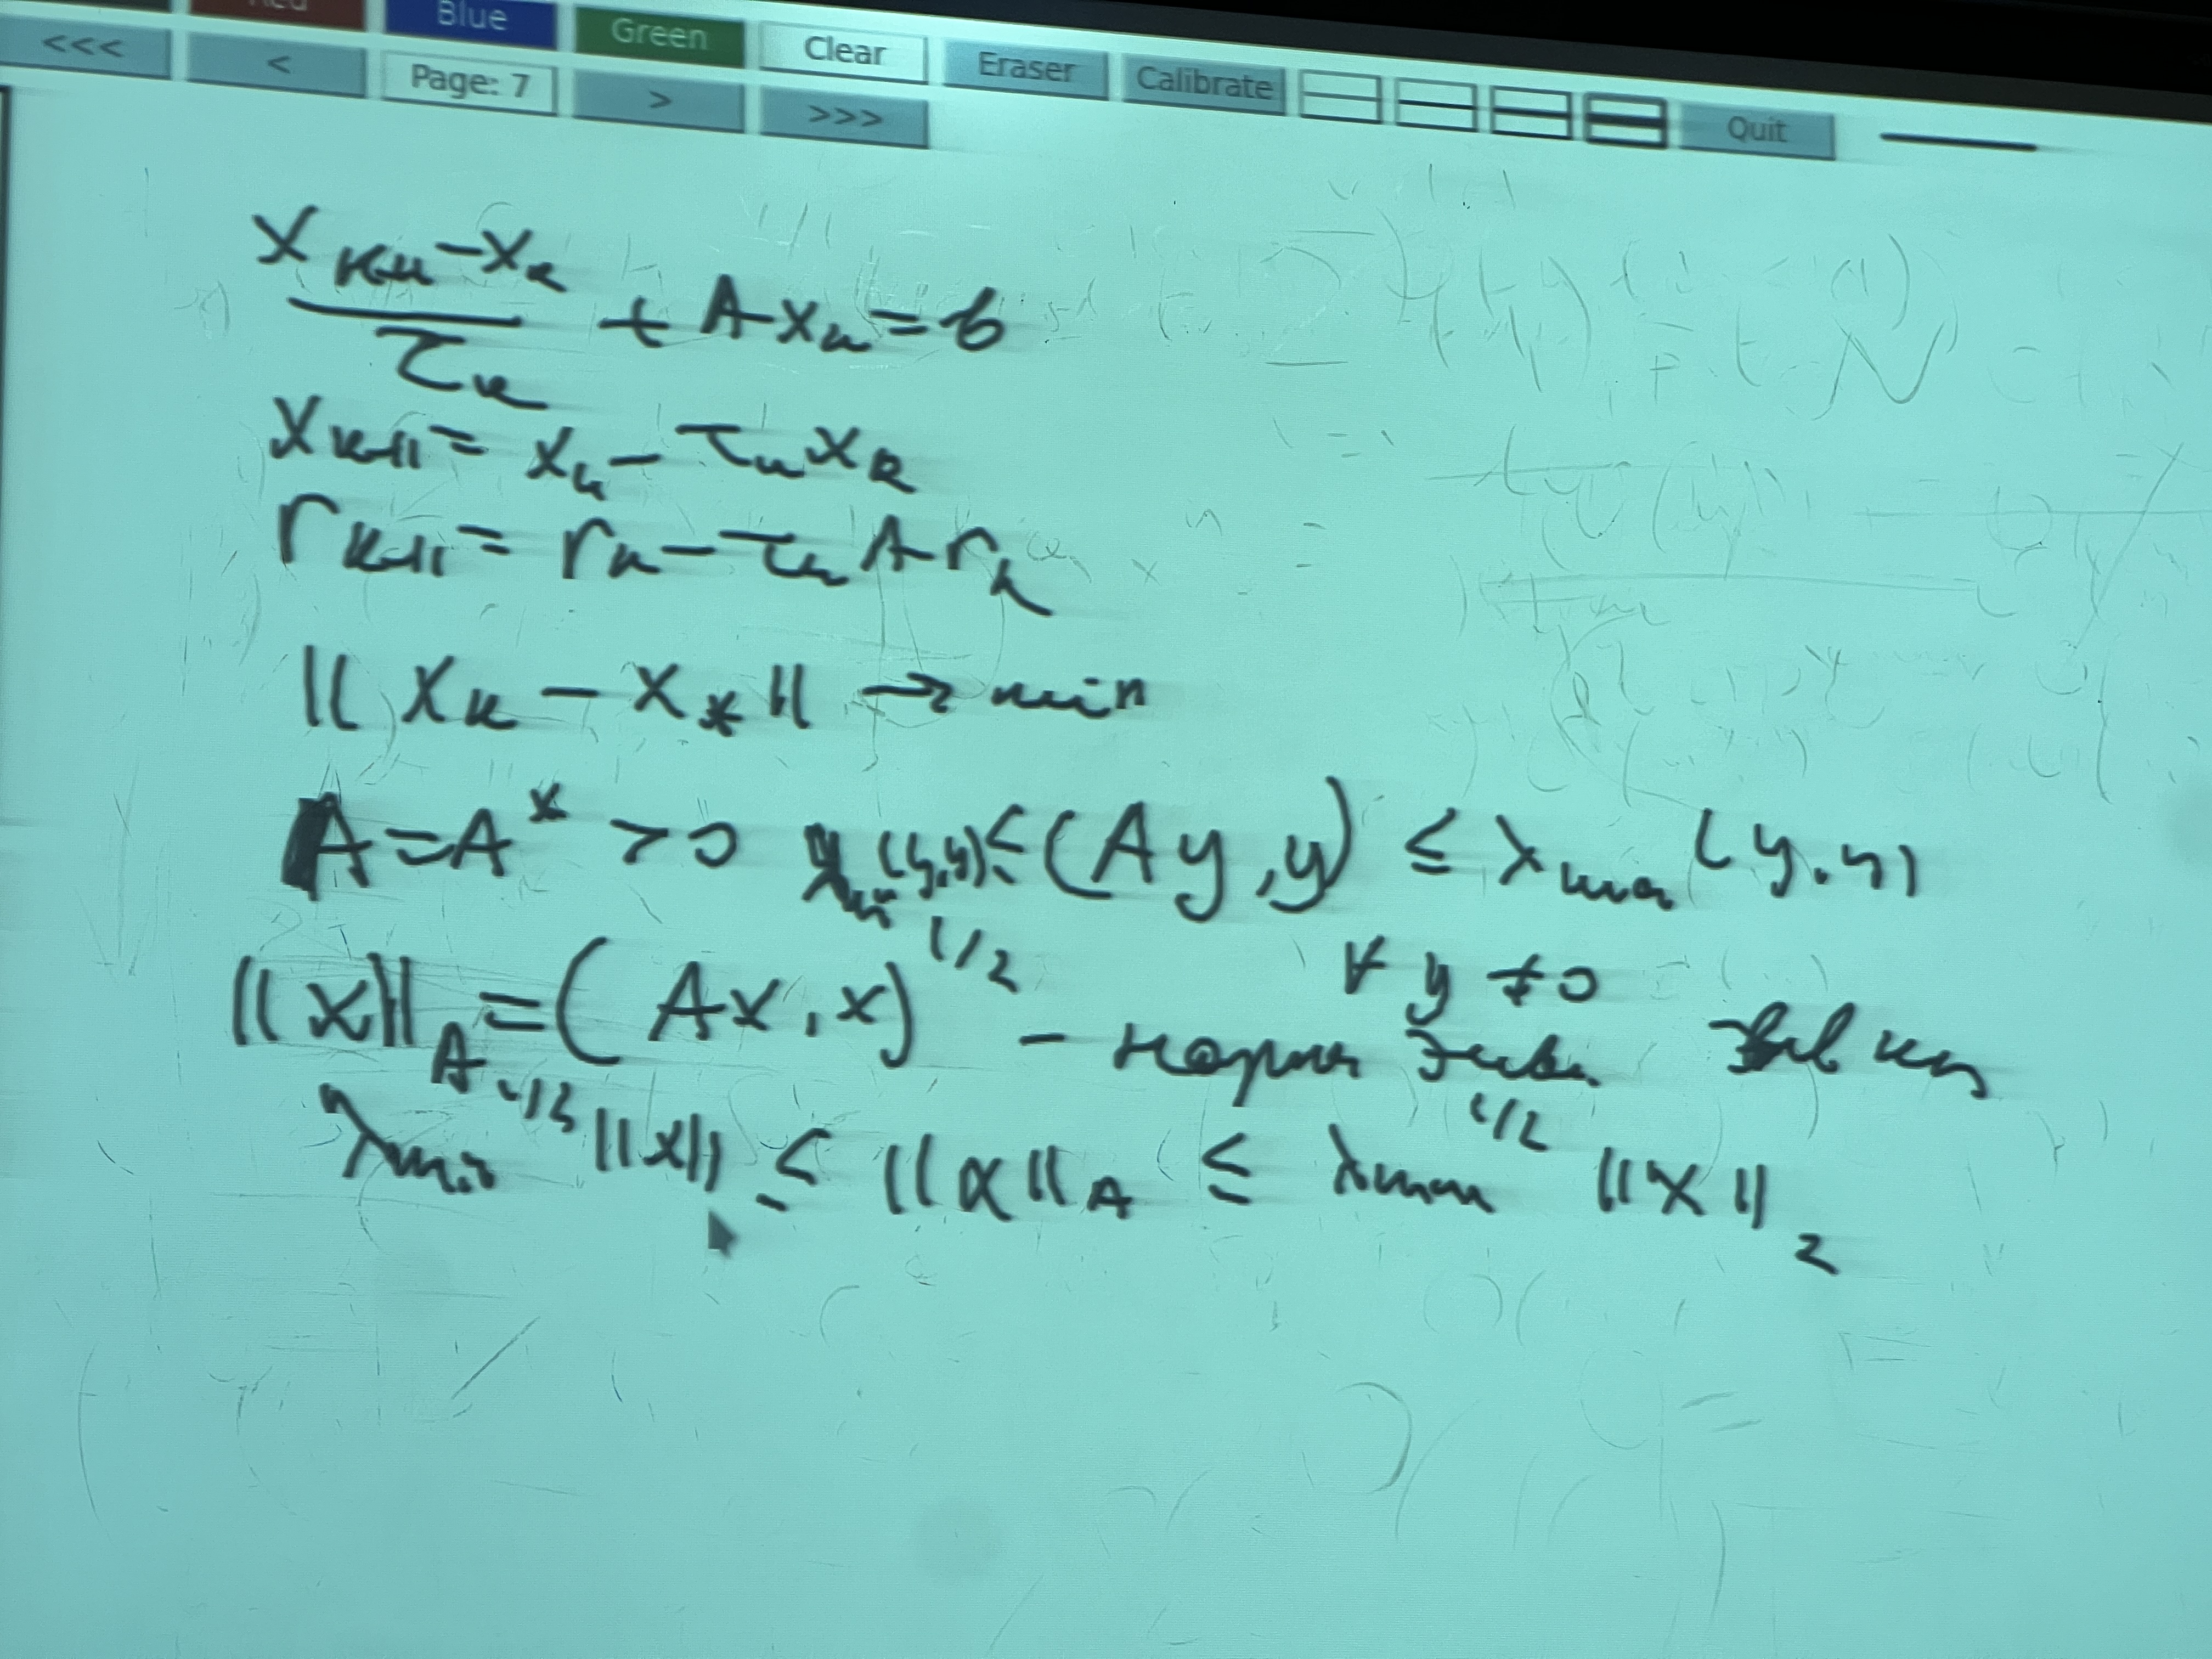 Red Blue Green Clear Eraser Calibrate Quit
<<< < Page: 7 > >>>
(x_{k+1} - x_k) / τ_k + A x_k = b
x_{k+1} = x_k - τ_k x_k
r_{k+1} = r_k - τ_k A r_k
|| x_k - x_* || → min
A = A* > 0 λ_min (y,y) ≤ (Ay, y) ≤ λ_max (y, y)
∀ y ≠ 0
||x||_A = (Ax, x)^{1/2} - норма
λ_min^{1/2} ||x|| ≤ ||x||_A ≤ λ_max^{1/2} ||x||_2